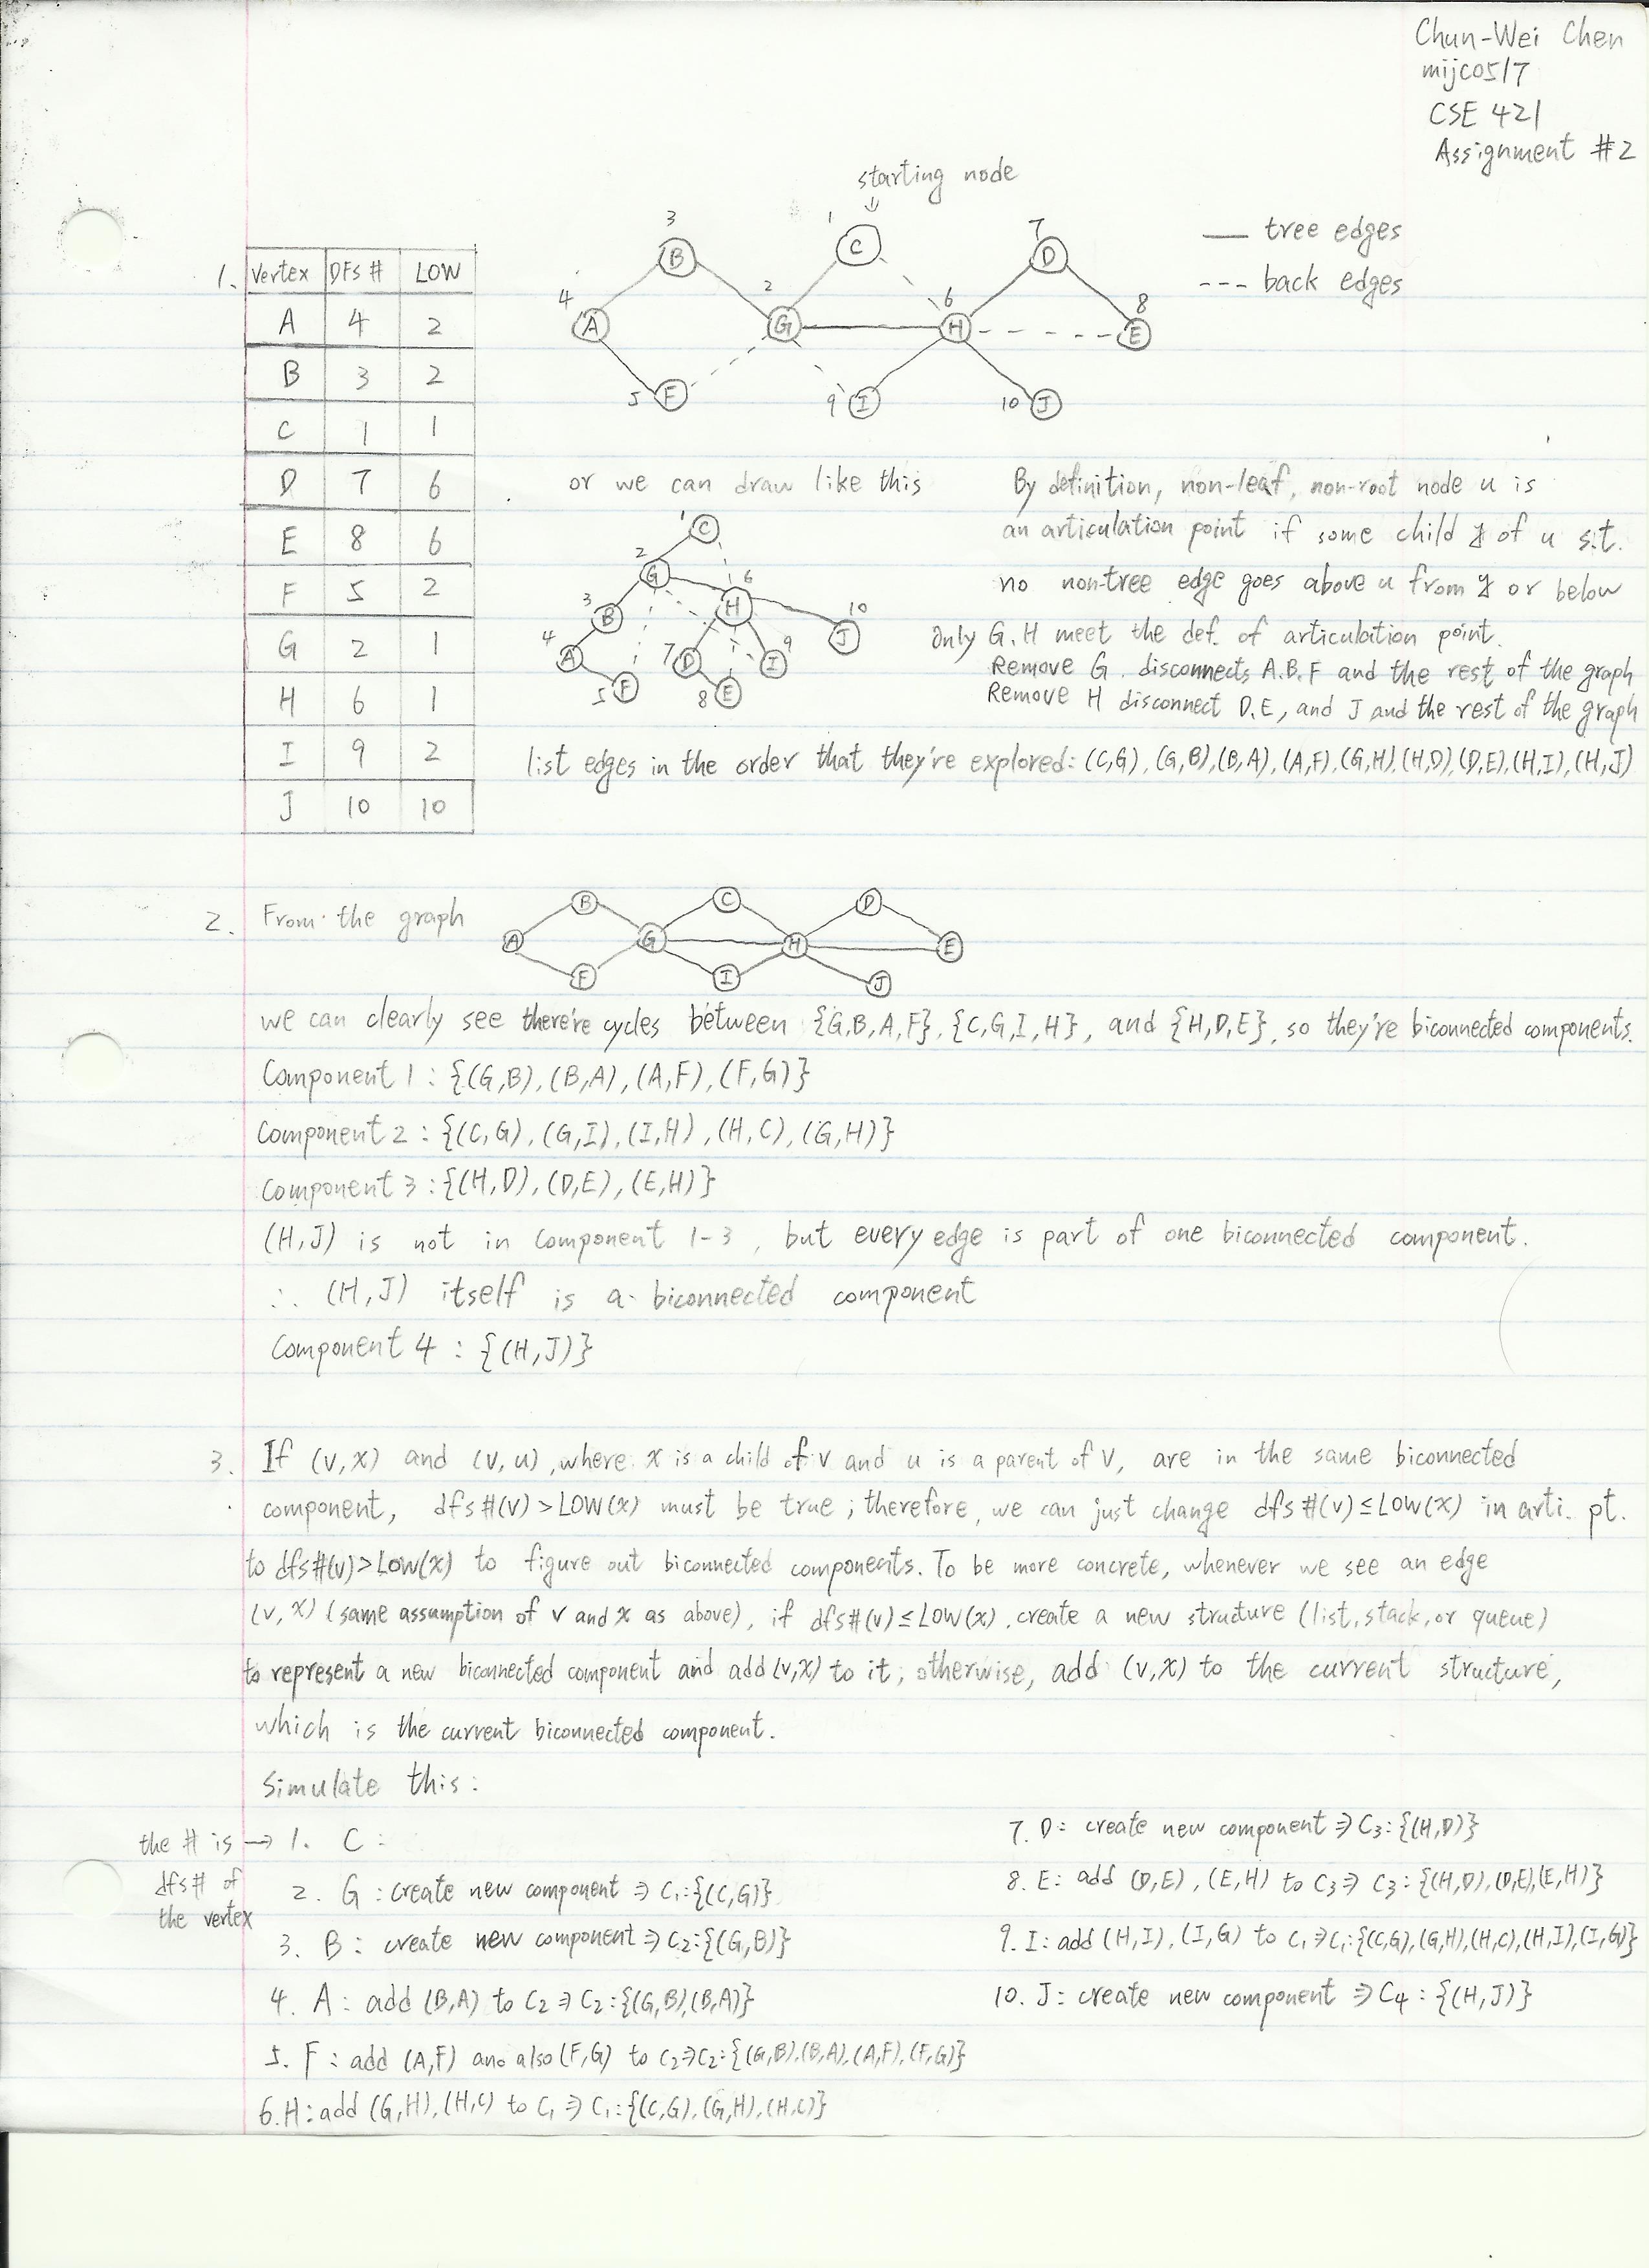 Chun-Wei Chen
mijc0517
CSE 421
Assignment #2
starting node
1.
Vertex DFS # LOW
A 4 2
B 3 2
C 1 1
D 7 6
E 8 6
F 5 2
G 2 1
H 6 1
I 9 2
J 10 10
3 B
1 C
7 D
4 A
2 G
6 H
8 E
5 F
9 I
10 J
— tree edges
--- back edges
or we can draw like this
1 C
2 G
6 H
3 B
10 J
4 A
7 D
9 I
5 F
8 E
By definition, non-leaf, non-root node u is
an articulation point if some child y of u s.t.
no non-tree edge goes above u from y or below
only G, H meet the def. of articulation point.
Remove G disconnects A.B.F and the rest of the graph
Remove H disconnect D.E, and J and the rest of the graph
list edges in the order that they're explored: (C,G), (G,B), (B,A), (A,F), (G,H), (H,D), (D,E), (H,I), (H,J)
2. From the graph
B C D
A G H E
F I J
we can clearly see there're cycles between {G,B,A,F}, {C,G,I,H}, and {H,D,E}, so they're biconnected components.
Component 1 : {(G,B), (B,A), (A,F), (F,G)}
Component 2 : {(C,G), (G,I), (I,H), (H,C), (G,H)}
Component 3 : {(H,D), (D,E), (E,H)}
(H,J) is not in component 1-3, but every edge is part of one biconnected component.
∴ (H,J) itself is a biconnected component
Component 4 : {(H,J)}
3. If (v,x) and (v,u), where x is a child of v and u is a parent of v, are in the same biconnected
component, dfs#(v) > LOW(x) must be true; therefore, we can just change dfs#(v) ≤ LOW(x) in arti. pt.
to dfs#(v) > LOW(x) to figure out biconnected components. To be more concrete, whenever we see an edge
(v,x) (same assumption of v and x as above), if dfs#(v) ≤ LOW(x), create a new structure (list, stack, or queue)
to represent a new biconnected component and add (v,x) to it; otherwise, add (v,x) to the current structure,
which is the current biconnected component.
Simulate this:
the # is → 1. C :
dfs# of
the vertex
2. G : create new component ⇒ C1:{(C,G)}
3. B : create new component ⇒ C2:{(G,B)}
4. A : add (B,A) to C2 ⇒ C2:{(G,B),(B,A)}
5. F : add (A,F) and also (F,G) to C2⇒C2:{(G,B),(B,A),(A,F),(F,G)}
6. H : add (G,H), (H,C) to C1 ⇒ C1:{(C,G),(G,H),(H,C)}
7. D : create new component ⇒ C3:{(H,D)}
8. E : add (D,E), (E,H) to C3 ⇒ C3:{(H,D),(D,E),(E,H)}
9. I : add (H,I), (I,G) to C1⇒C1:{(C,G),(G,H),(H,C),(H,I),(I,G)}
10. J : create new component ⇒ C4 : {(H,J)}